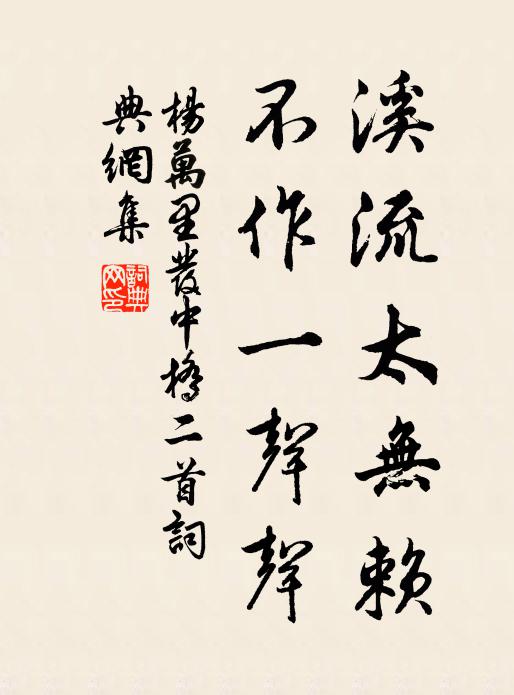 溪流太無賴
不作一聲聲
楊萬里發中橋二首詞
典網集
詞典
网印